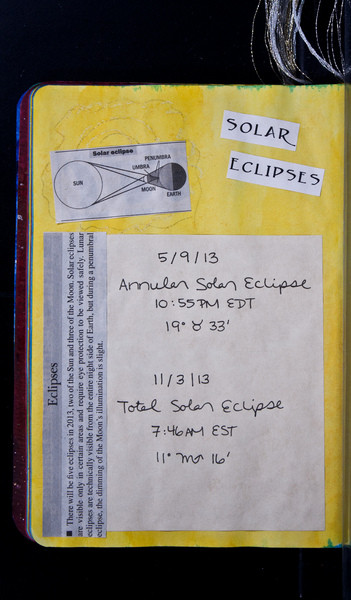 SOLAR
ECLIPSES
Solar eclipse
PENUMBRA
UMBRA
SUN
MOON
EARTH
5/9/13
Annular Solar Eclipse
10:55 PM EDT
19° ♉ 33'
11/3/13
Total Solar Eclipse
7:46 AM EST
11° ♏ 16'
Eclipses
■ There will be five eclipses in 2013, two of the Sun and three of the Moon. Solar eclipses
are visible only in certain areas and require eye protection to be viewed safely. Lunar
eclipses are technically visible from the entire night side of Earth, but during a penumbral
eclipse, the dimming of the Moon's illumination is slight.